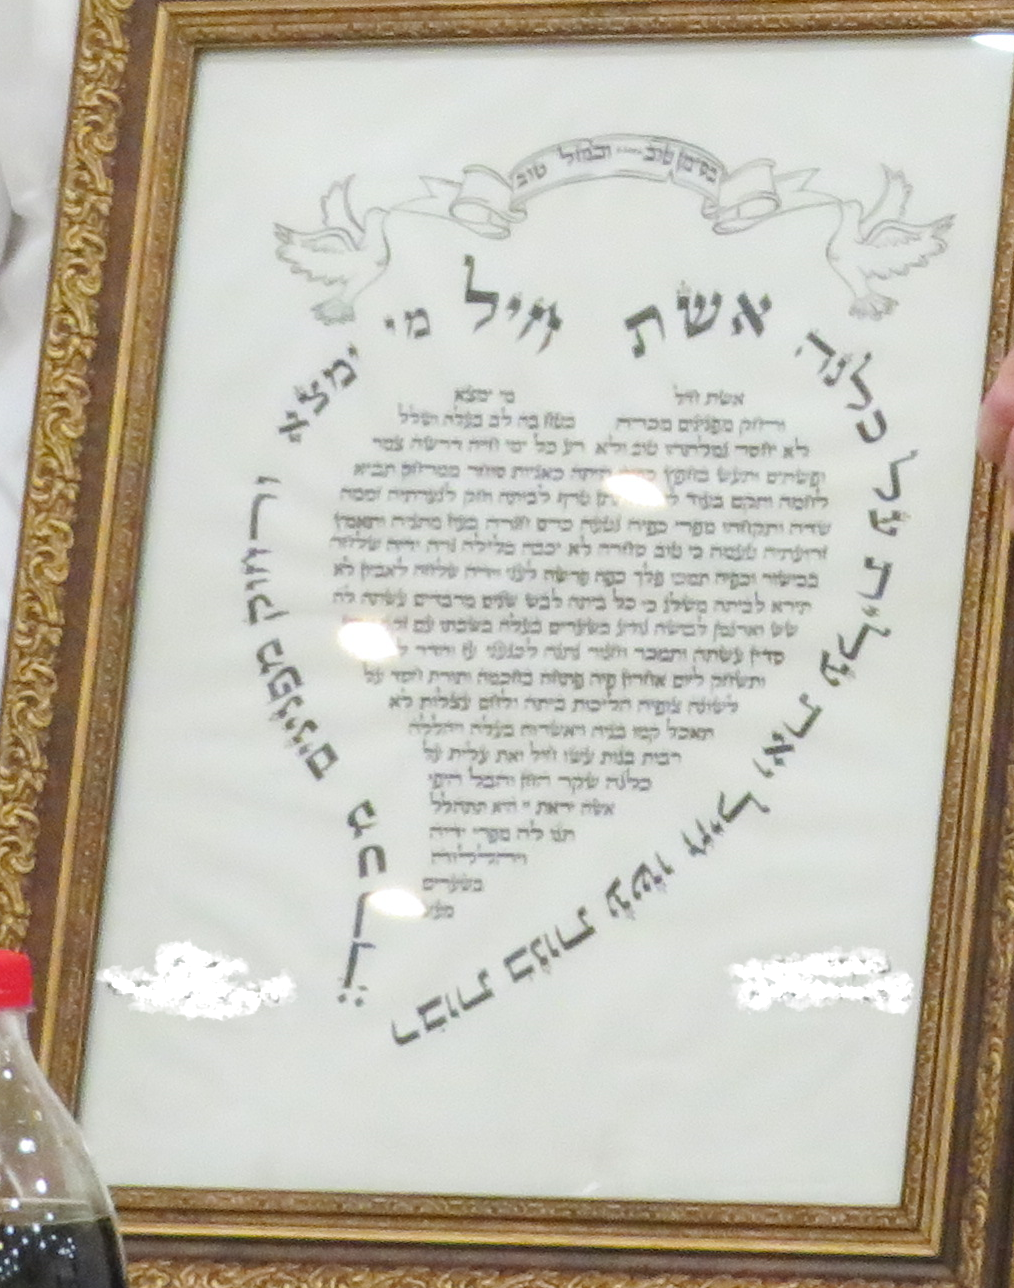 בסימן טוב ובמזל טוב
אשת חיל מי ימצא
ורחוק מפנינים
מכרה
רבות בנות עשו חיל ואת עלית על כלנה
אשת חיל מי ימצא
ורחוק מפנינים מכרה בטח בה לב בעלה ושלל
לא יחסר גמלתהו טוב ולא רע כל ימי חיה דרשה צמר
ופשתים ותעש בחפץ היתה כאניות סוחר ממרחק תביא
לחמה ותקם בעוד טרף לביתה וחק לנערתיה זממה
שדה ותקחהו מפרי כפיה נטעה כרם חגרה בעוז מתניה ותאמץ
זרועתיה טעמה כי טוב סחרה לא יכבה בלילה נרה ידיה שלחה
בכישור וכפיה תמכו פלך כפה פרשה לעני וידיה שלחה לאביון לא
תירא לביתה משלג כי כל ביתה לבש שנים מרבדים עשתה לה
שש וארגמן לבושה נודע בשערים בעלה בשבתו עם
סדין עשתה ותמכר וחגור נתנה לכנעני עז והדר
ותשחק ליום אחרון פיה פתחה בחכמה ותורת חסד על
לשונה צופיה הליכות ביתה ולחם עצלות לא
תאכל קמו בניה ויאשרוה בעלה ויהללה
רבות בנות עשו חיל ואת עלית על
כלנה שקר החן והבל היפי
אשה יראת יי היא תתהלל
תנו לה מפרי ידיה
ויהללוה
בשערים